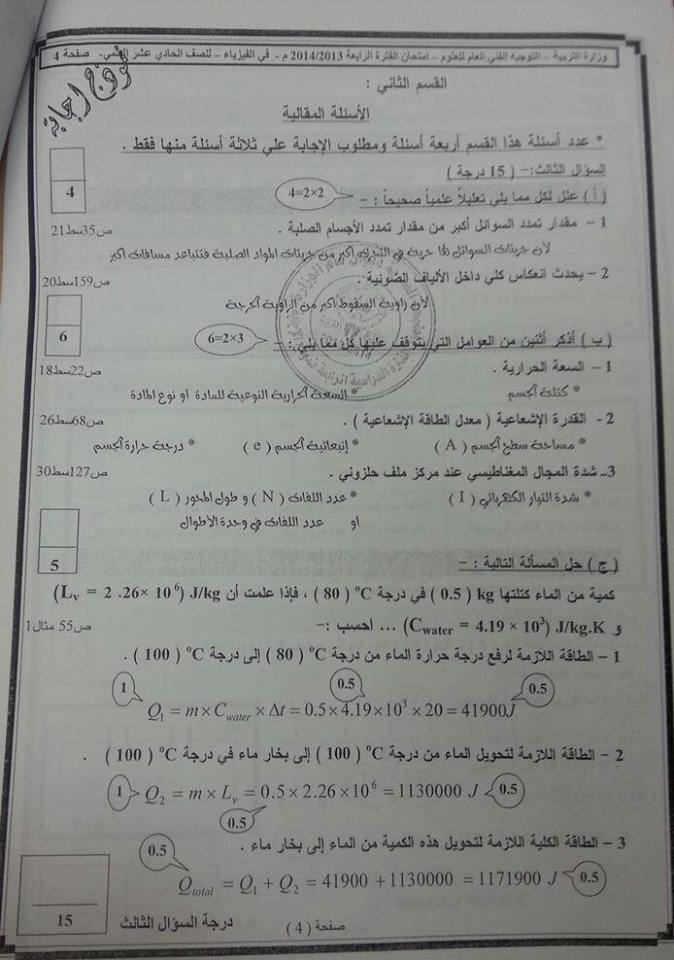 وزارة التربية – التوجيه الفني العام للعلوم – امتحان الفترة الرابعة 2014/2013 م - في الفيزياء – للصف الحادي عشر العلمي- صفحة 4
نموذج إجابة
القسم الثاني :
الأسئلة المقالية
* عدد أسئلة هذا القسم أربعة أسئلة ومطلوب الإجابة علي ثلاثة أسئلة منها فقط .
السؤال الثالث:- ( 15 درجة )
( أ ) علل لكل مما يلي تعليلاً علمياً صحيحاً : - 4=2×2 4
1 – مقدار تمدد السوائل أكبر من مقدار تمدد الأجسام الصلبة . ص35سط21
لأن جزيئات السوائل لها حرية في التحرك أكبر من جزيئات المواد الصلبة فتتباعد مسافات أكبر
2 – يحدث انعكاس كلي داخل الألياف الضوئية . ص159سط20
لأن زاوية السقوط أكبر من الزاوية الحرجة
( ب ) أذكر أثنين من العوامل التي يتوقف عليها كل مما يلي : - 6=2×3 6
1 – السعة الحرارية . ص22سط18
* كتلة الجسم * السعة الحرارية النوعية للمادة او نوع المادة
2- القدرة الإشعاعية ( معدل الطاقة الإشعاعية ) . ص68سط26
* مساحة سطح الجسم ( A ) * إنبعاثية الجسم ( e ) * درجة حرارة الجسم
3– شدة المجال المغناطيسي عند مركز ملف حلزوني . ص127سط30
* شدة التيار الكهربائي ( I ) * عدد اللفات ( N ) و طول المحور ( L )
او عدد اللفات في وحدة الأطوال
( ج ) حل المسألة التالية : - 5
كمية من الماء كتلتها kg ( 0.5 ) في درجة ºC ( 80 ) ، فإذا علمت أن (Lv = 2 .26× 10⁶) J/kg
و (Cwater = 4.19 × 10³) J/kg.K ... احسب :- ص55 مثال1
1 – الطاقة اللازمة لرفع درجة حرارة الماء من درجة ºC ( 80 ) إلى درجة ºC ( 100 ) .
1 0.5 0.5
Q₁ = m × Cwater × Δt = 0.5 × 4.19 × 10³ × 20 = 41900J
2 – الطاقة اللازمة لتحويل الماء من درجة ºC ( 100 ) إلى بخار ماء في درجة ºC ( 100 ) .
1 Q₂ = m × Lv = 0.5 × 2.26 × 10⁶ = 1130000 J 0.5
0.5
3 – الطاقة الكلية اللازمة لتحويل هذه الكمية من الماء إلى بخار ماء .
0.5
Qtotal = Q₁ + Q₂ = 41900 + 1130000 = 1171900 J 0.5
15 درجة السؤال الثالث
صفحة ( 4 )